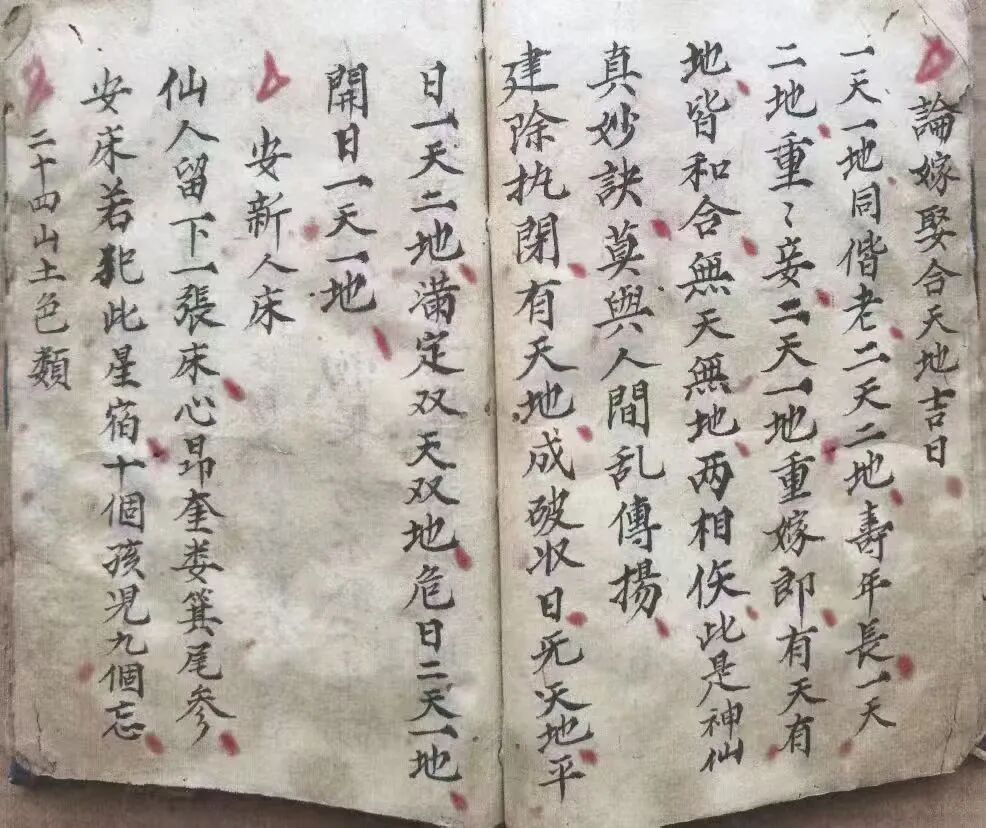 論嫁娶合天地吉日
一天一地同偕老二天二地壽年長一天
二地重〻妾二天一地重嫁郎有天有
地皆和合無天無地两相佚此是神仙
真妙訣莫與人間乱傳揚
建除执閉有天地成破收日旡天地平
日一天二地满定双天双地危日二天一地
開日一天一地
安新人床
仙人留下一張床心昴奎娄箕尾参
安床若犯此星宿十個孩児九個忘
二十四山土色類